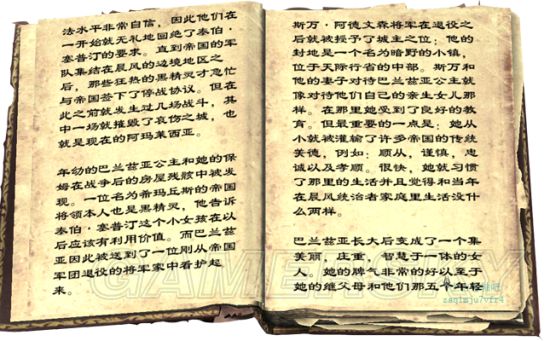 法水平非常自信，因此他们在
一开始就无礼地回绝了泰伯·
塞普汀的要求。直到帝国的军
队集结在晨风的边境地区之
后，那些狂热的黑精灵才急忙
与帝国签下了停战协议。但在
此之前就发生过几场战斗，其
中一场就摧毁了哀伤之城，也
就是现在的阿玛莱西亚。
年幼的巴兰兹亚公主和她的保
姆在战争后的房屋残骸中被发
现。一位名为希玛丘斯的帝国
将领本人也是黑精灵，他告诉
泰伯·塞普汀这个小女孩在以
后应该有利用价值。而巴兰兹
亚因此被送到了一位刚从帝国
军团退役的将军家中看护起
来。
斯万·阿德文森将军在退役之
后就被授予了城主之位；他的
封地是一个名为暗野的小镇，
位于天际行省的中部。斯万和
他的妻子对待巴兰兹亚公主就
像对待他们自己的亲生女儿那
样。在那里她受到了良好的教
育，但最重要的一点是：她从
小就被灌输了许多帝国的传统
美德，例如：顺从，谨慎，忠
诚以及孝顺。很快，她就习惯
了那里的生活并且觉得和当年
在晨风统治者家庭里生活没什
么两样。
巴兰兹亚长大后变成了一个集
美丽，庄重，智慧于一体的女
人。她的脾气非常的好以至于
她的继父母和他们那五个年轻
GAMERSKY
zaq1mju7vfr4